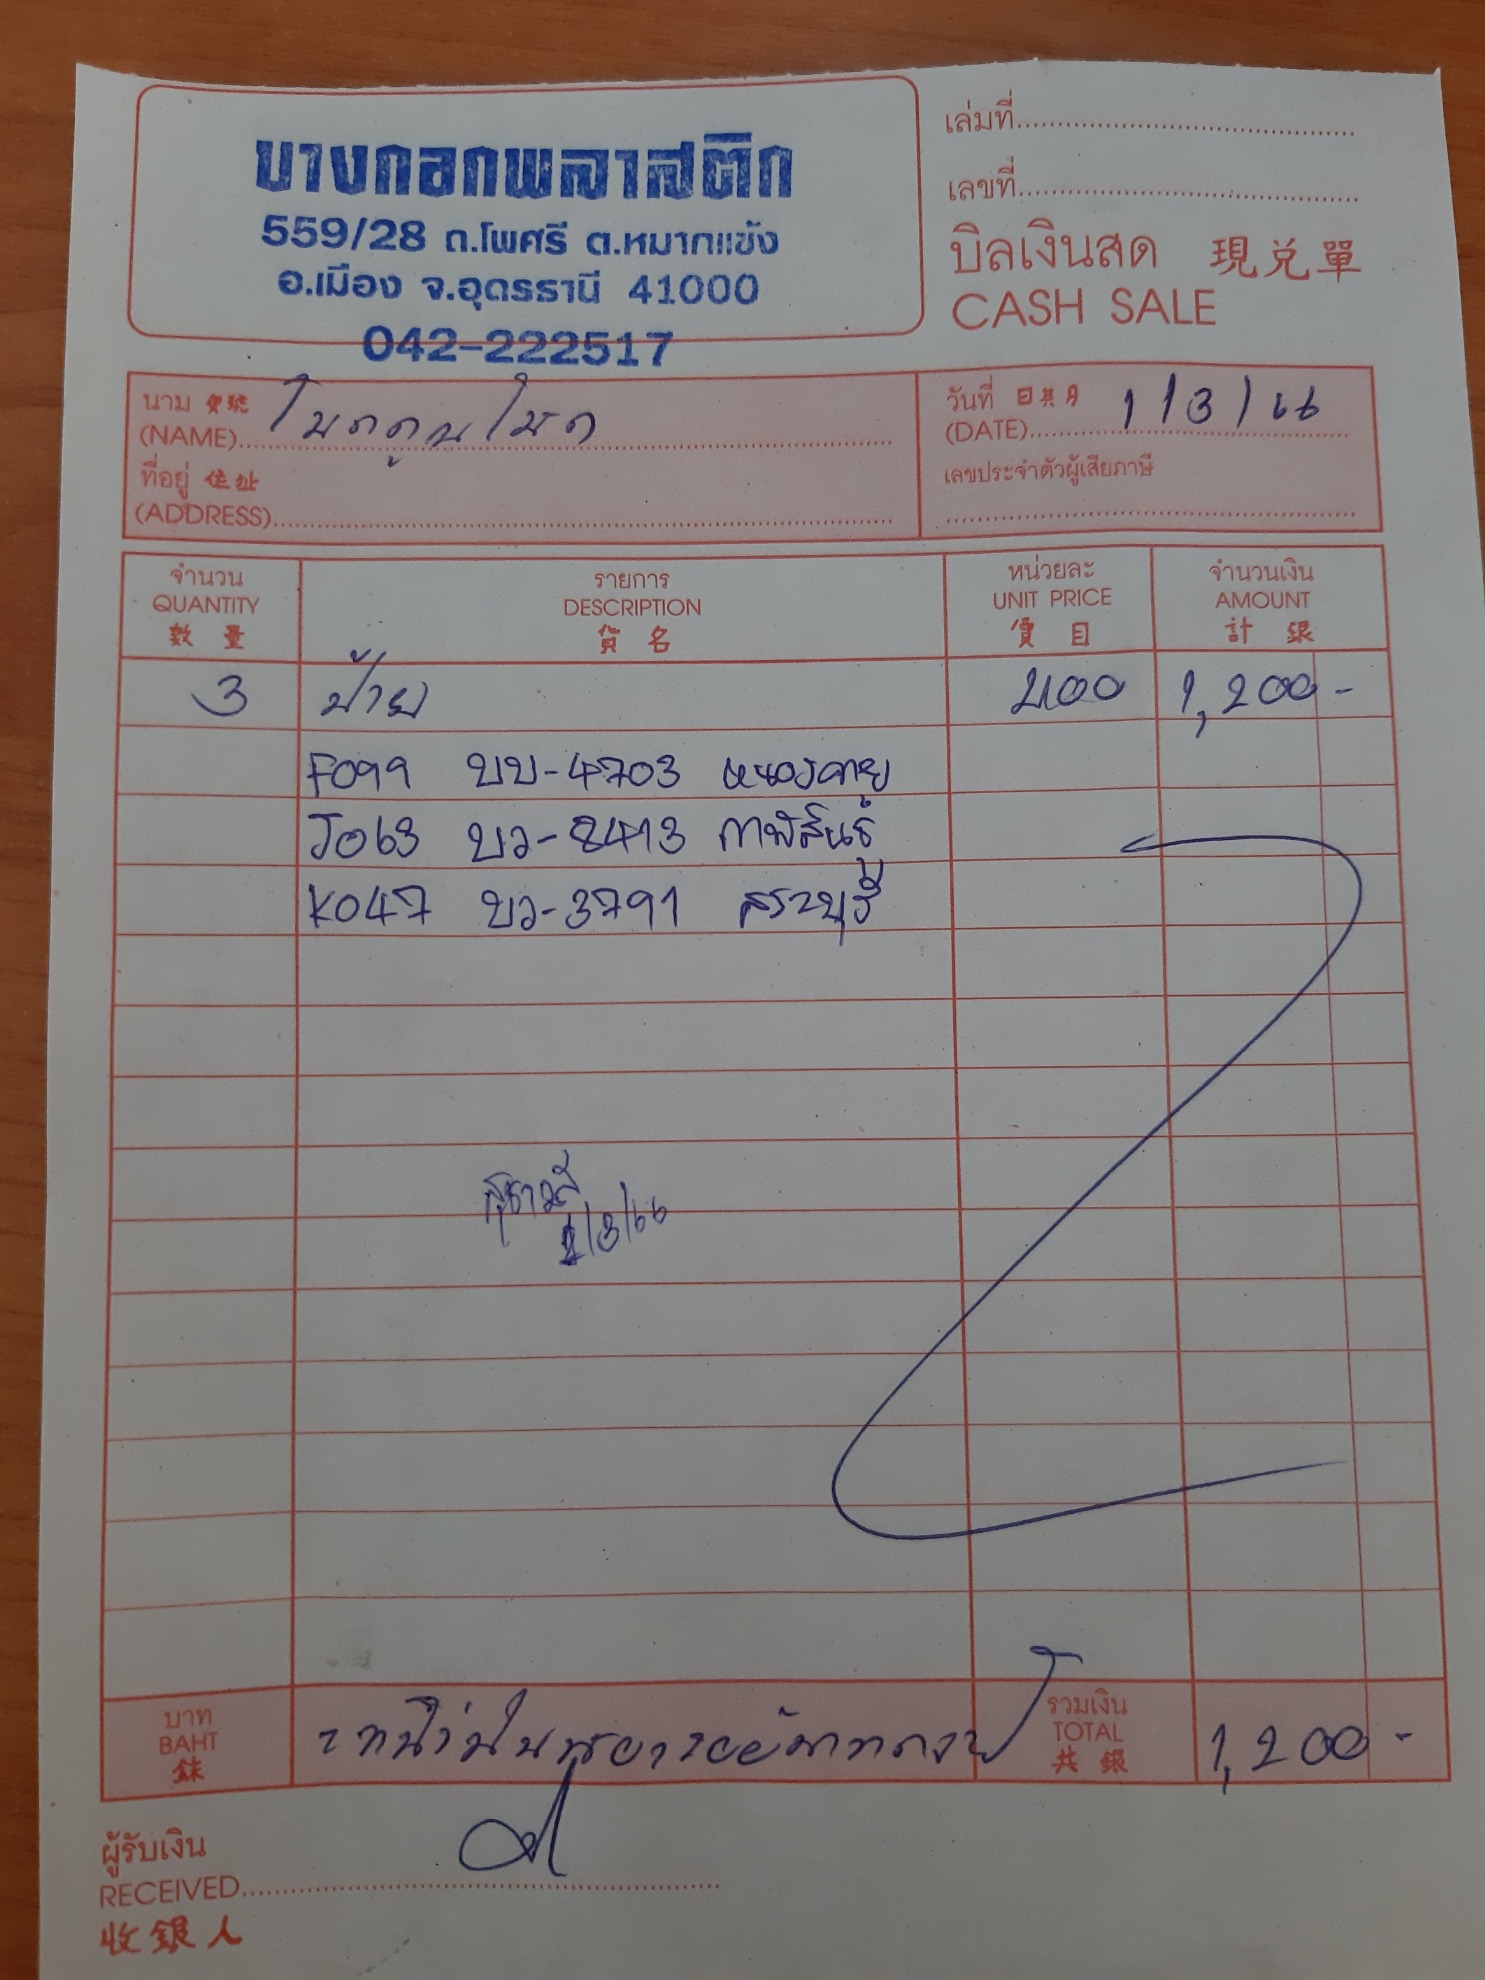 บางกอกพลาสติก
559/28 ถ.โพศรี ต.หมากแข้ง
อ.เมือง จ.อุดรธานี 41000
042-222517
เล่มที่
เลขที่
บิลเงินสด 現兌單
CASH SALE
นาม 實號
(NAME)
ที่อยู่ 住址
(ADDRESS)
วันที่ 日其月 1/3/66
(DATE)
เลขประจำตัวผู้เสียภาษี
จำนวน รายการ หน่วยละ จำนวนเงิน
QUANTITY DESCRIPTION UNIT PRICE AMOUNT
數量 貨名 價目 計銀
3 ป้าย 400 1,200-
F099 บบ-4703 หนองคาย
J063 บว-8413 กาฬสินธุ์
K047 บว-3791 สระบุรี
1/3/66
บาท รวมเงิน
BAHT TOTAL 1,200-
銖 共銀
ผู้รับเงิน
RECEIVED
收銀人